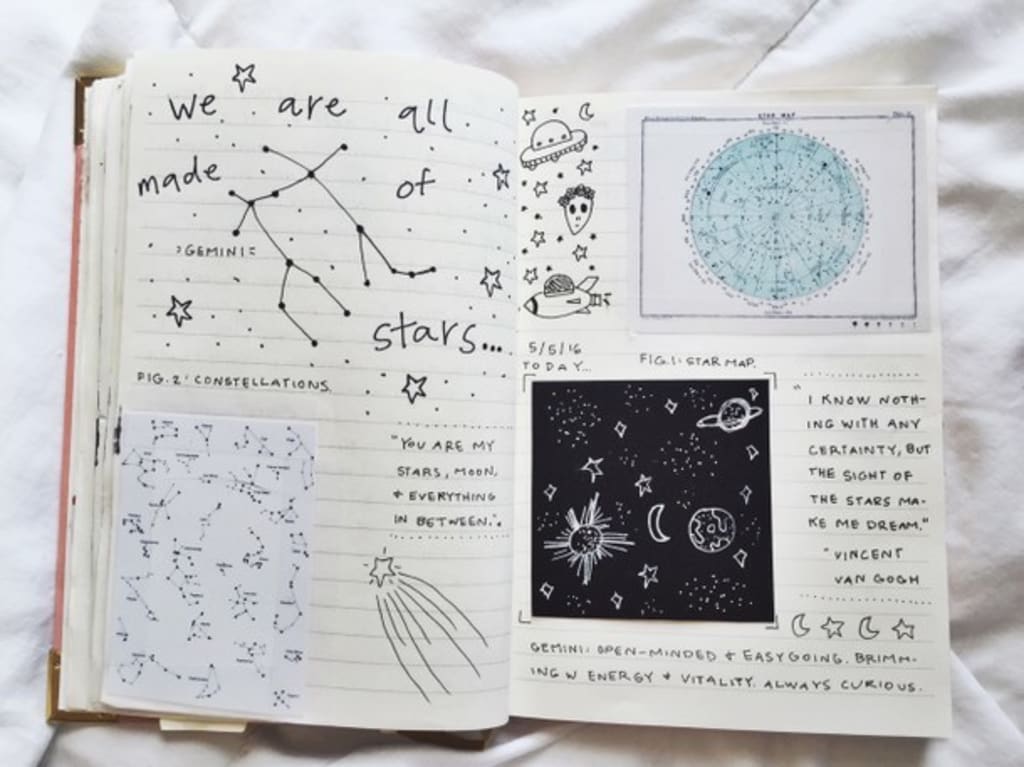 we are all
made of
:GEMINI:
stars...
FIG. 2: CONSTELLATIONS.
"YOU ARE MY
STARS, MOON,
& EVERYTHING
IN BETWEEN."
STAR MAP
5/5/16
TODAY...
FIG. 1: STAR MAP.
"I KNOW NOTH-
ING WITH ANY
CERTAINTY, BUT
THE SIGHT OF
THE STARS MA-
KE ME DREAM."
~VINCENT
VAN GOGH
GEMINI: OPEN-MINDED & EASYGOING. BRIMM-
ING W ENERGY & VITALITY. ALWAYS CURIOUS.